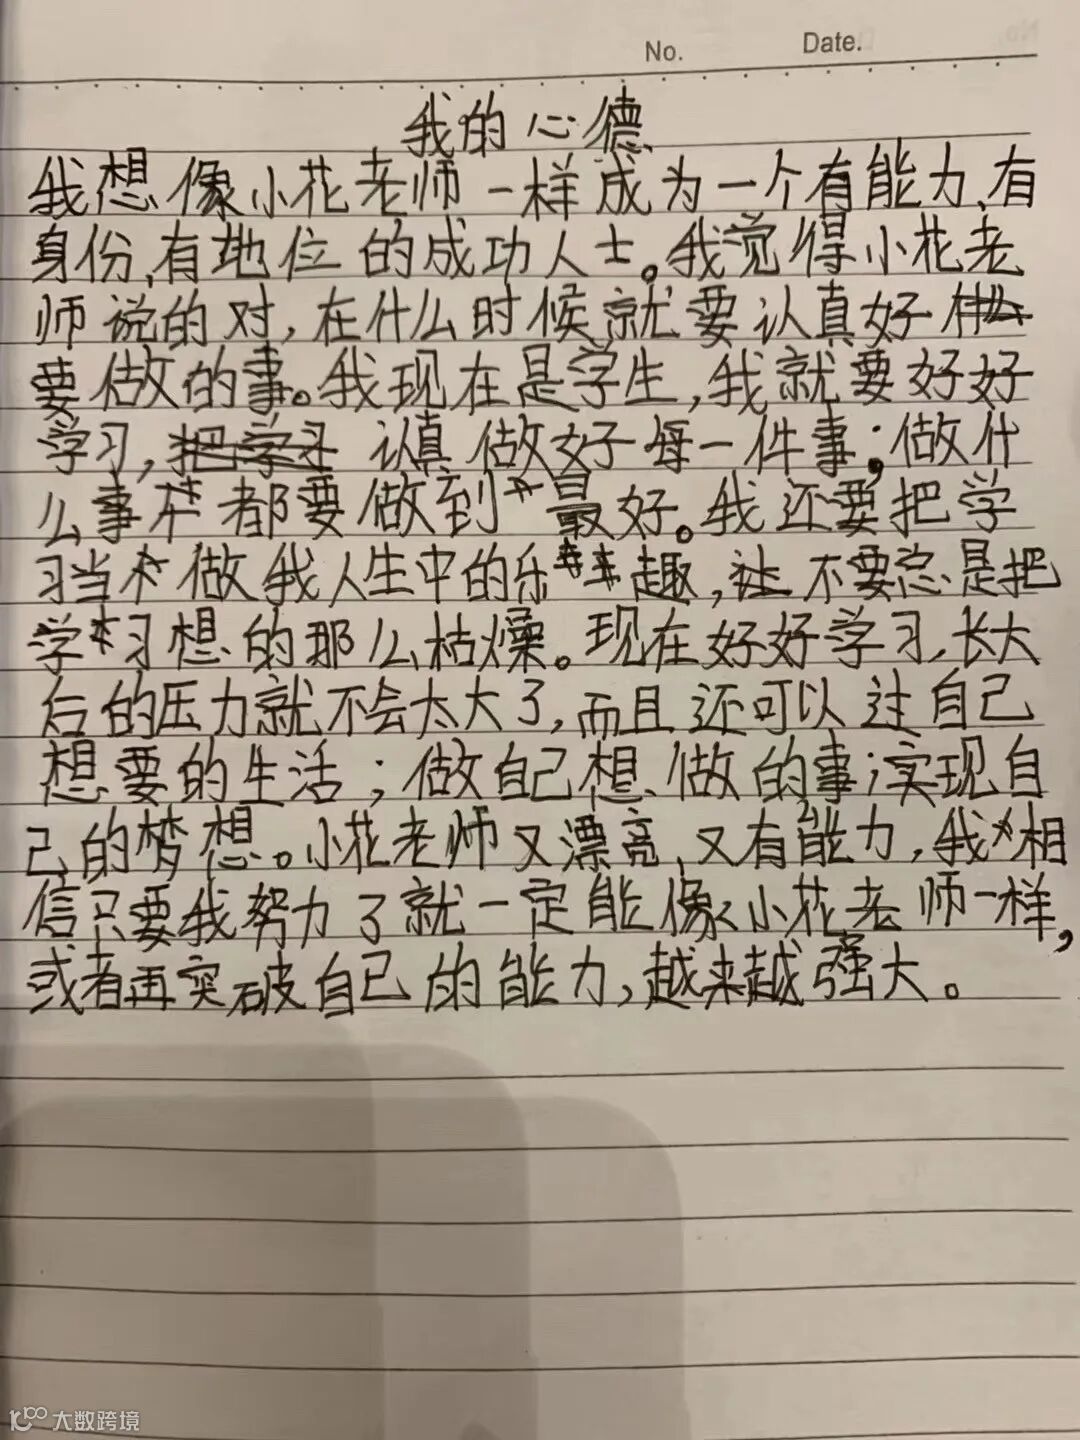 No. Date.
我的心德
我想像小花老师一样成为一个有能力、有
身份,有地位的成功人士。我觉得小花老
师说的对,在什么时候就要认真好
要做的事。我现在是学生,我就要好好
学习,把学习 认真做好每一件事;做什
么事都要做到最好。我还要把学
习当做我人生中的乐趣,让不要总是把
学习想的那么枯燥。现在好好学习,长大
后的压力就不会太大了,而且还可以过自己
想要的生活;做自己想做的事;实现自
己的梦想。小花老师又漂亮、又有能力,我相
信只要我努力了就一定能像小花老师一样,
或者再突破自己的能力,越来越强大。
大数跨境